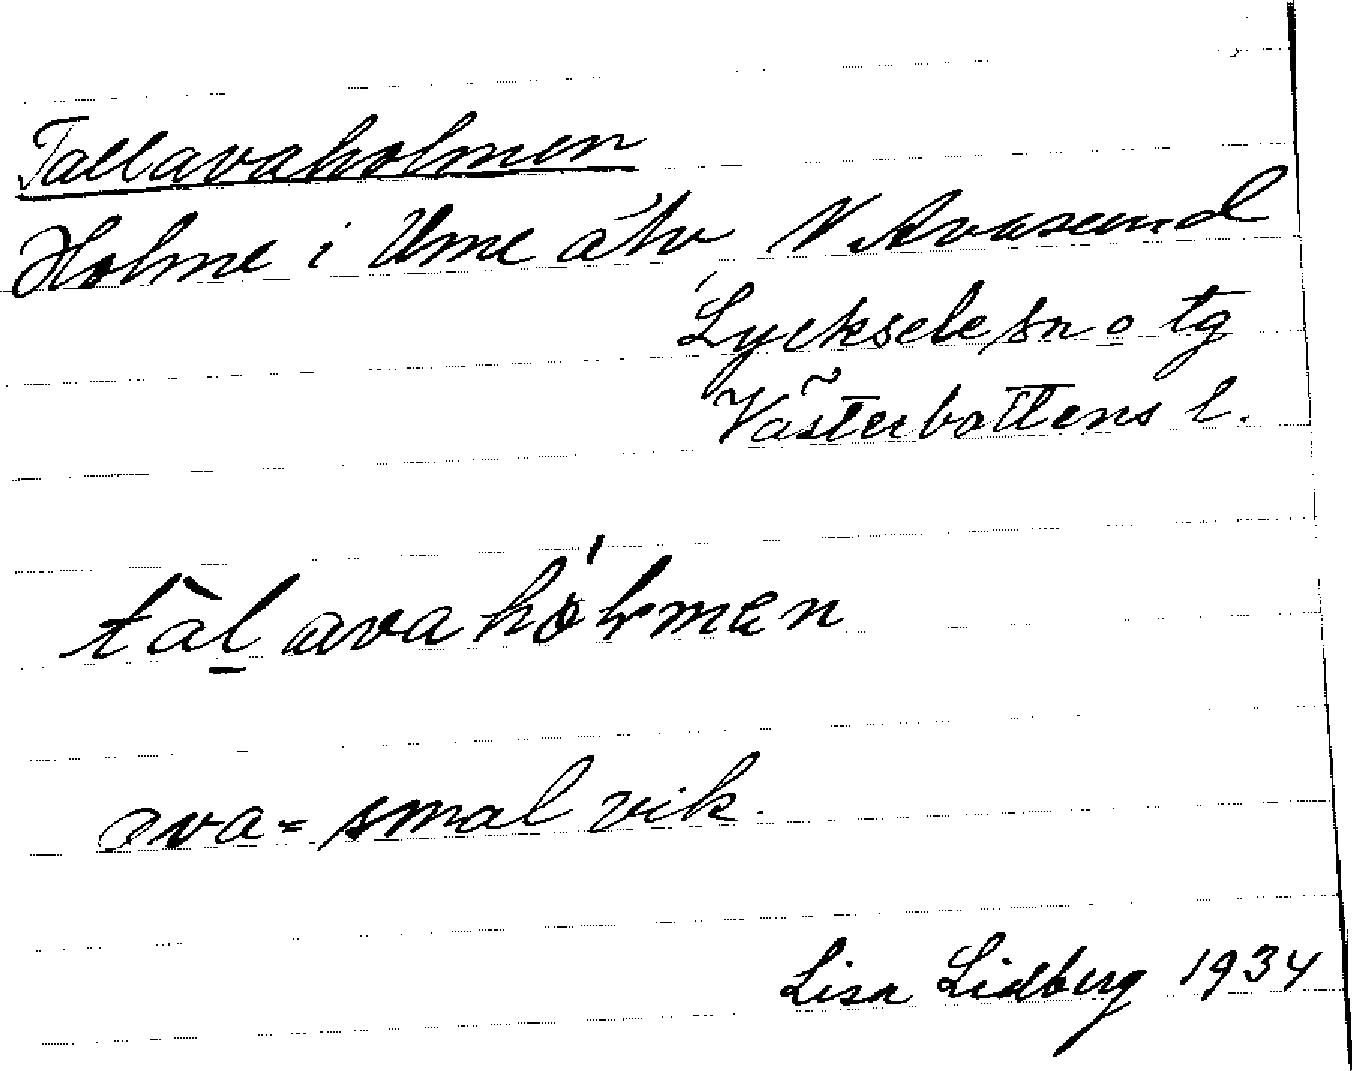 Tallavaholmen
Holme i Ume älv, N. Avasund
Lycksele sn o tg
Västerbottens l.
tàl ava hólmen
ava = smal vik.
Lisa Lidberg 1934